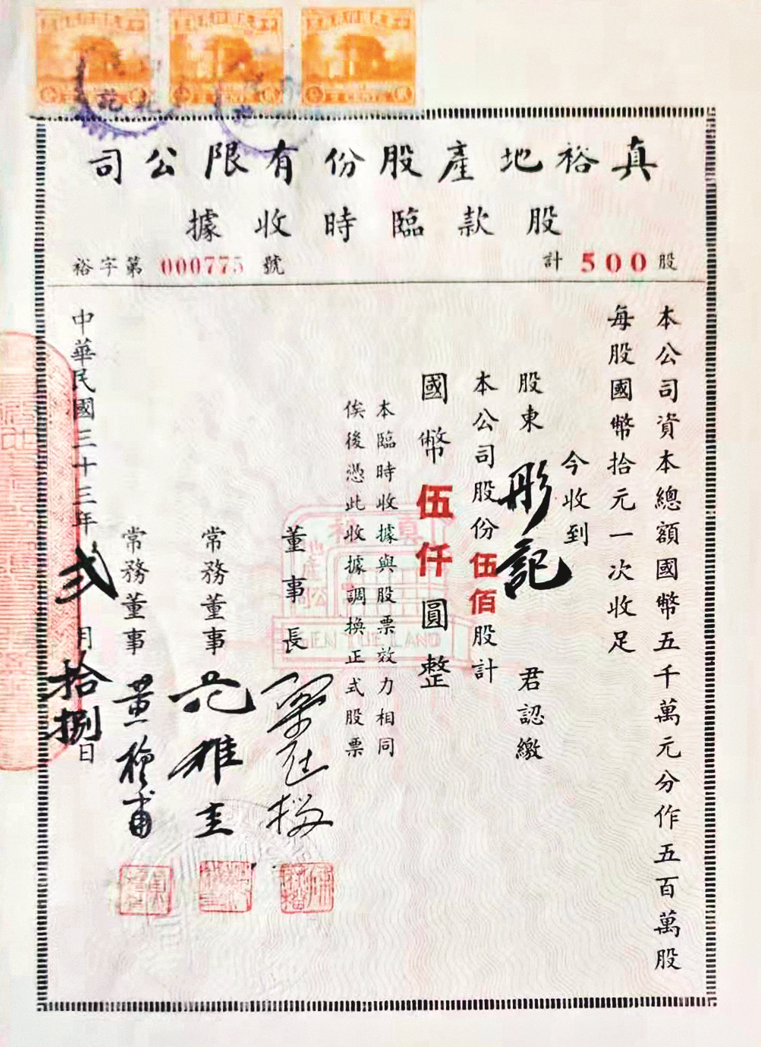 真裕地產股份有限公司
股款臨時收據
裕字第 000775 號
計 500 股
本公司資本總額國幣五千萬元分作五百萬股
每股國幣拾元一次收足
今收到
股東 彤記 君認繳
本公司股份伍佰股計
國幣伍仟圓整
本臨時收據與股票效力相同
俟後憑此收據調換正式股票
董事長
常務董事
常務董事
中華民國三十三年弍月拾捌日
真裕
地產
公司
LAND